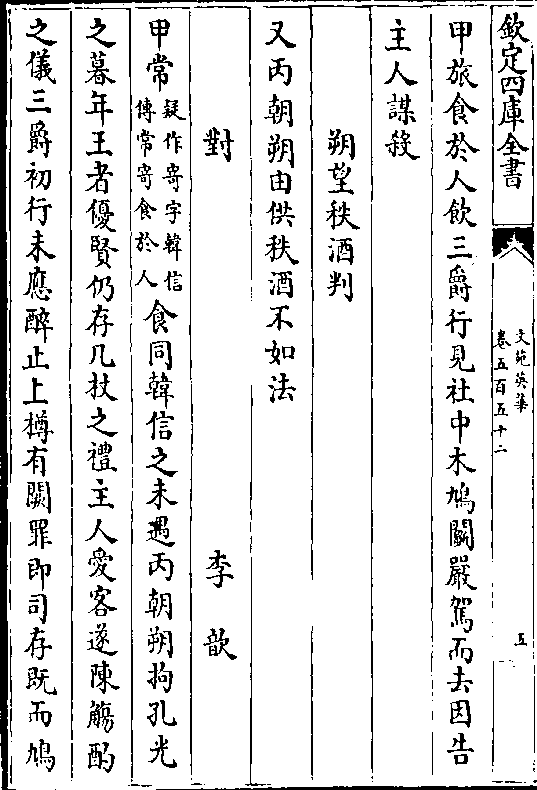 欽定四庫全書
文苑英華
卷五百五十二
五
甲旅食於人飲三爵行見社中木鳩鬭嚴駕而去因告
主人謀殺
朔望秩酒判
又丙朝朔由供秩酒不如法
對
李歆
甲常疑作寄字韓信傳常寄食於人食同韓信之未遇丙朝朔拘孔光
之暮年王者優賢仍存几杖之禮主人愛客遂陳觴酌
之儀三爵初行未應醉止上樽有闕罪即司存既而鳩